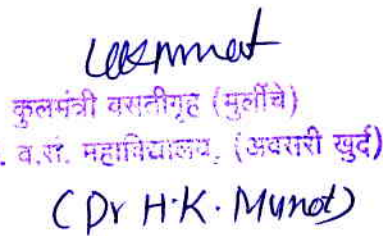 कुलमंत्री वसतीगृह (मुलींचे)
. व.सं. महाविद्यालय, (अवसरी खुर्द)
(Dr H.K. Munot)